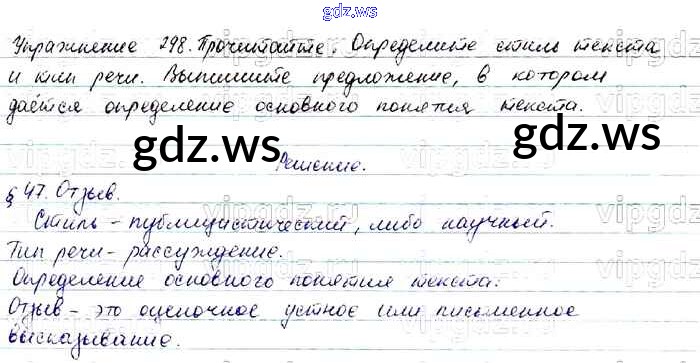 gdz.ws
Упражнение 298. Прочитайте. Определите стиль текста
и тип речи. Выпишите предложение, в котором
даётся определение основного понятия текста.
gdz.ws gdz.ws
Решение.
§ 47. Отзыв.
Стиль - публицистический, либо научный.
Тип речи - рассуждение.
Определение основного понятия текста:
Отзыв - это оценочное устное или письменное
высказывание.